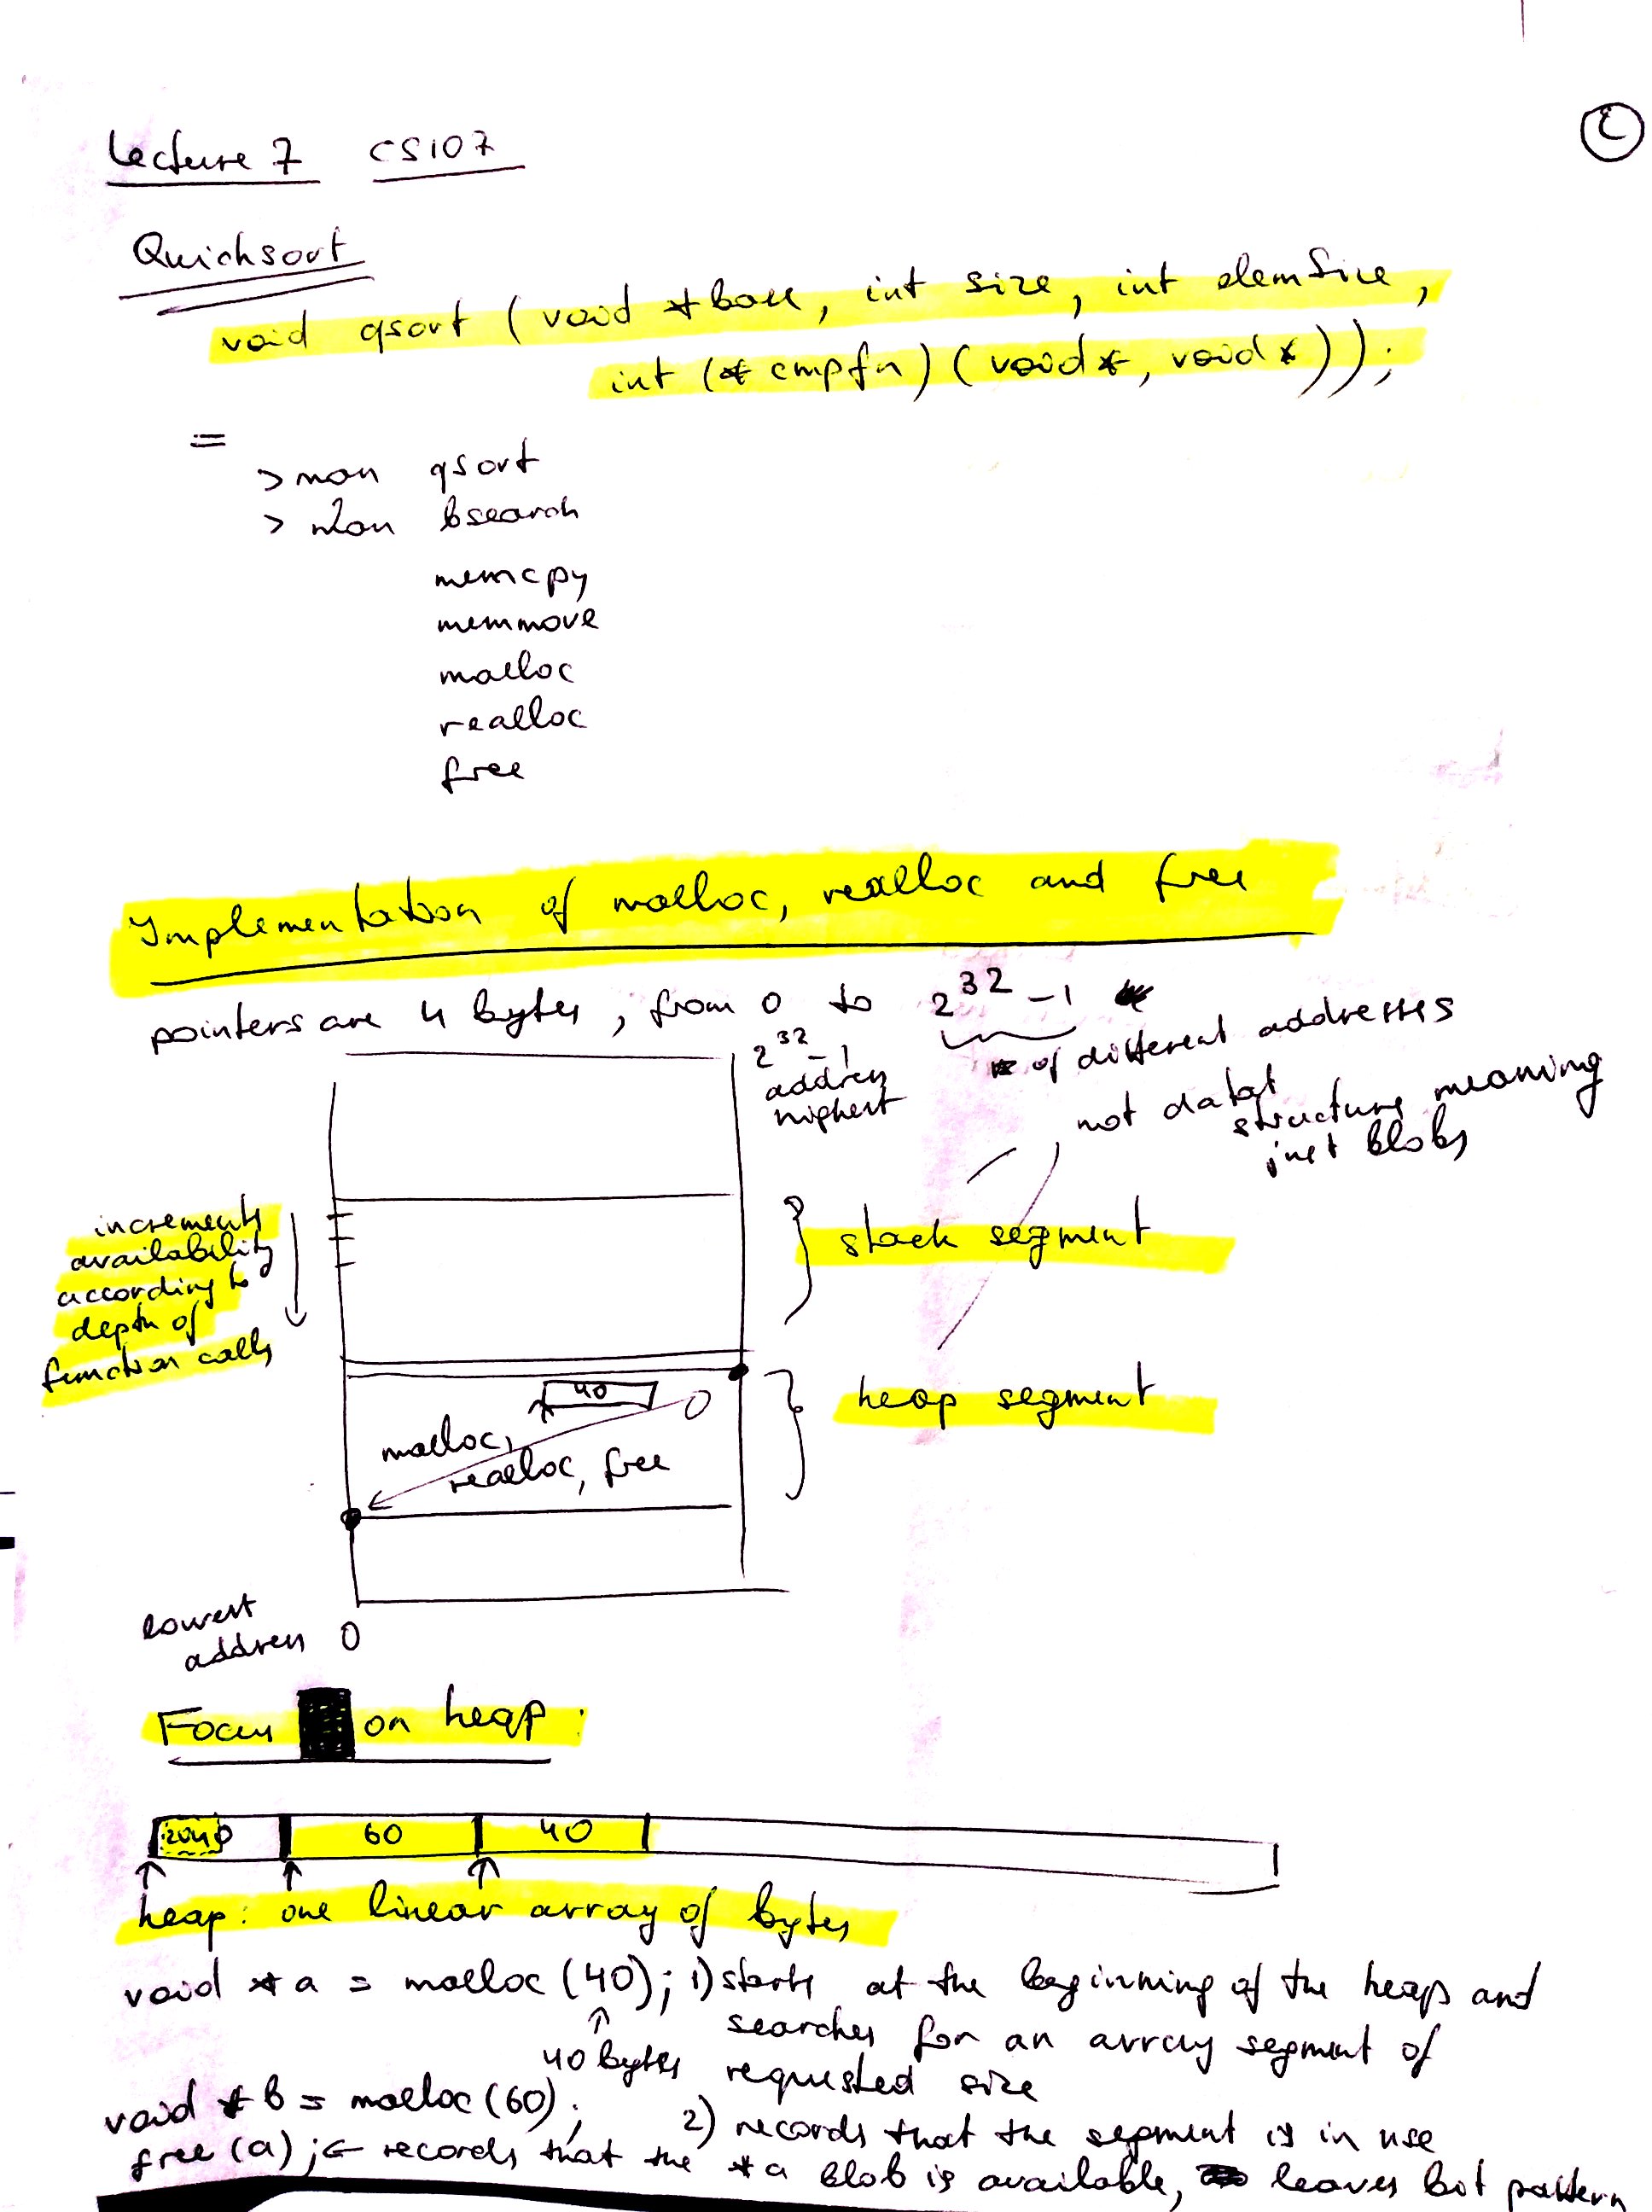 Lecture 7 CS107
Quicksort
void qsort ( void *base, int size, int elemSize,
int (* cmpfn) ( void*, void* ));
=
> man qsort
> man bsearch
memcpy
memmove
malloc
realloc
free
Implementation of malloc, realloc and free
pointers are 4 bytes, from 0 to 2^32 - 1
# of different addresses
2^32 - 1
address
highest
not data
structure meaning
just blobs
increments
availability
according to
depth of
function calls
stack segment
40
heap segment
malloc,
realloc, free
lowest
address 0
Focus on heap:
60 40
heap: one linear array of bytes
void * a = malloc (40); 1) starts at the beginning of the heap and
searches for an array segment of
40 bytes requested size
void * b = malloc (60);
2) records that the segment is in use
free (a); ← records that the *a blob is available, leaves bit pattern